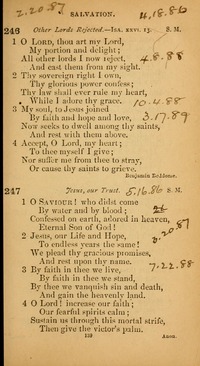 2.20.87 SALVATION. 4.18.86
246 Other Lords Rejected.—ISA. XXVI. 13. S. M.
1 O LORD, thou art my Lord,
My portion and delight;
All other lords I now reject, 4.8.88
And cast them from my sight.
2 Thy sovereign right I own,
Thy glorious power confess;
Thy law shall ever rule my heart,
While I adore thy grace. 10.4.88
3 My soul, to Jesus joined
By faith and hope and love, 3.17.89
Now seeks to dwell among thy saints,
And rest with them above.
4 Accept, O Lord, my heart;
To thee myself I give;
Nor suffer me from thee to stray,
Or cause thy saints to grieve.
Benjamin Beddome.
247 Jesus, our Trust. 5.16.86 S. M.
1 O SAVIOUR! who didst come
By water and by blood;
Confessed on earth, adored in heaven,
Eternal Son of God!
2 Jesus, our Life and Hope, 3.20.87
To endless years the same!
We plead thy gracious promises,
And rest upon thy name.
3 By faith in thee we live, 7.22.88
By faith in thee we stand,
By thee we vanquish sin and death,
And gain the heavenly land.
4 O Lord! increase our faith;
Our fearful spirits calm;
Sustain us through this mortal strife,
Then give the victor's palm.
139 Anon.